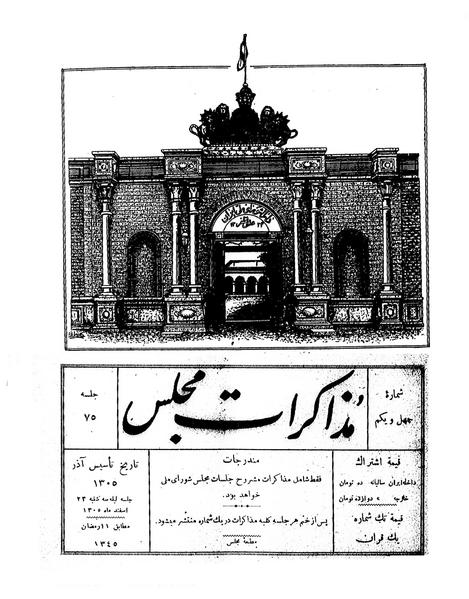 شمارهٔ
چهل و یکم
مذاکرات مجلس
جلسه
۷۵
قیمة اشتراك
داخله ایران سالیانه ده تومان
خارجه » دوازده تومان
قیمة تك شماره
یك قران
مندرجات
فقط شامل مذاکرات مشروح جلسات مجلس شورای ملی
خواهد بود.
پس از ختم هر جلسه کلیه مذاکرات در یك شماره منتشر میشود.
مطبعهٔ مجلس
تاریخ تأسیس آذر
۱۳۰۵
جلسه لیله سه شنبه ۲۳
اسفند ماه ۱۳۰۵
مطابق ۱۱ رمضان
۱۳۴۵